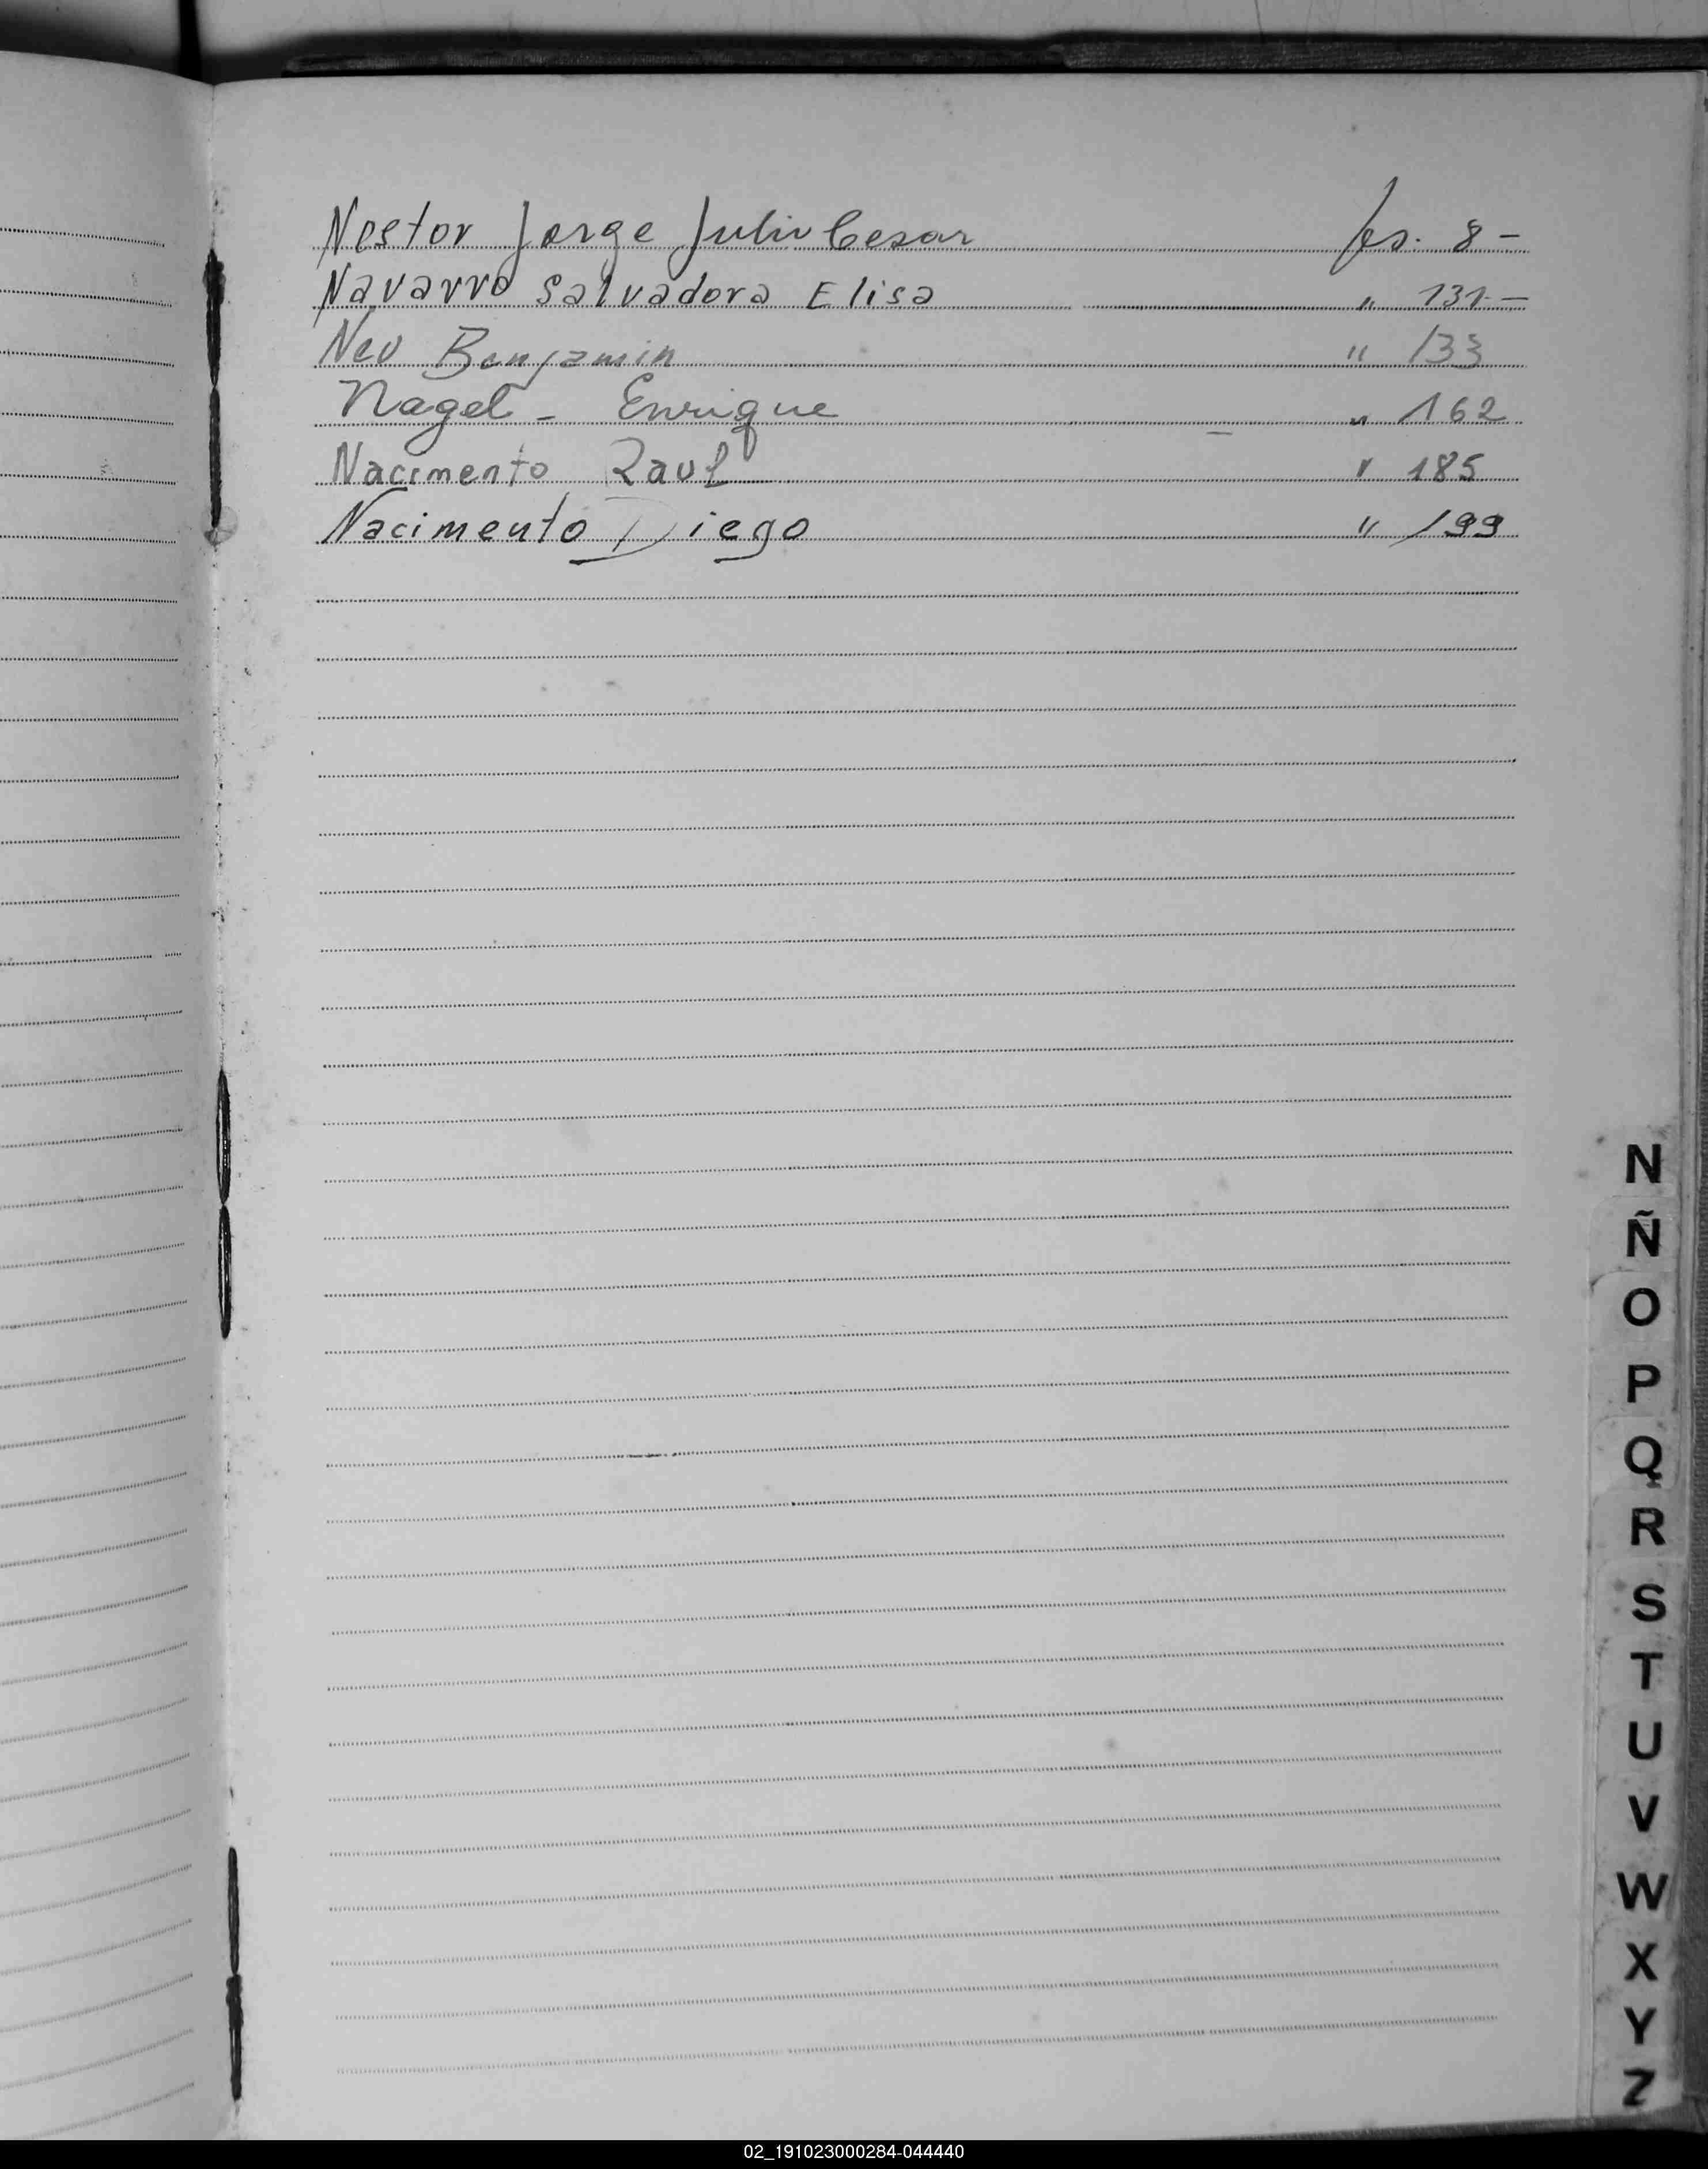 Nestor Jorge Julio Cesar fs. 8 -
Navarro Salvadora Elisa " 131 -
Neu Benjamin " 133
Nagel - Enrique " 162
Nacimento Raul " 185
Nacimento Diego " 199
N
Ñ
O
P
Q
R
S
T
U
V
W
X
Y
Z
02_191023000284-044440